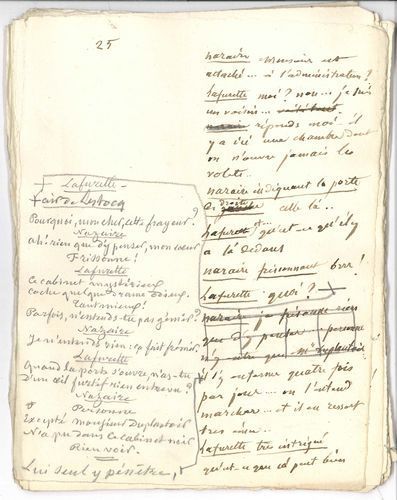 25
nazaire monsieur est
attaché... à l'administration?
Lafurette moi? non... je suis
un voisin...
réponds moi il
y a ici une chambre dont
on n'ouvre jamais les
volets...
nazaire indiquant la porte
à droite celle là...
Lafurette qu'est-ce qu'il y
a là dedans
nazaire frissonnant brrr!
Lafurette quoi?
nazaire je frissonne rien
que d'y penser personne
n'y entre que Mr Duplantoir
il s'y enferme quatre fois
par jour... on l'entend
marcher... et il en ressort
très ému...
Lafurette très intrigué
qu'est-ce que ça peut bien
Lafurette
+ air de Lestocq
Pourquoi, mon cher, cette frayeur?
Nazaire
Ah! rien que d'y penser, mon cœur
Frissonne!
Lafurette
Ce cabinet mystérieux
Cache quelque drame odieux.
Tant mieux!
Parfois, n'entends-tu pas gémir?
Nazaire
Je n'entends rien; ça fait frémir,
Lafurette
Quand la porte s'ouvre, n'as-tu
D'un œil furtif rien entrevu?
Nazaire
Personne
Excepté monsieur Duplantoir
N'a pu dans ce cabinet noir
Rien voir.
Lui seul y pénètre,